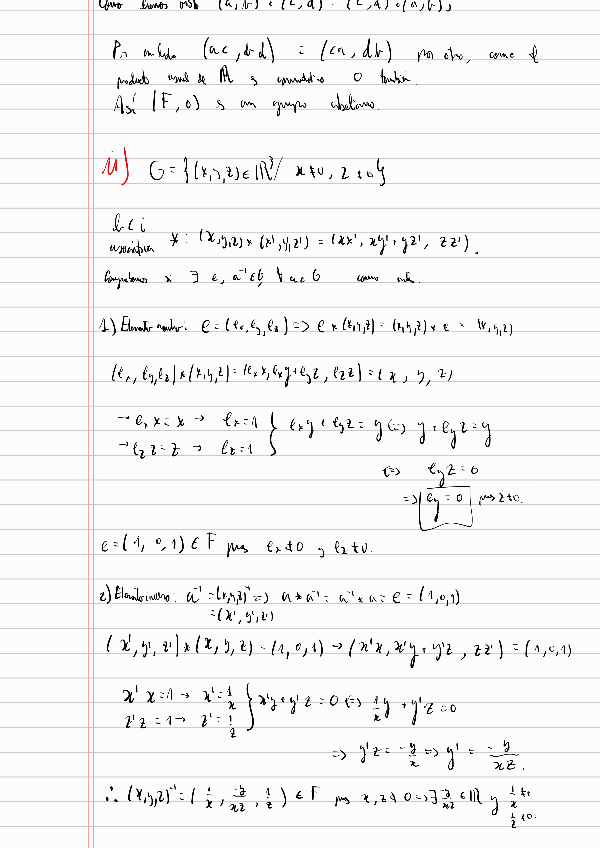 Como hemos visto (a, b) o (c, d) = (c, d) o (a, b),
Por un lado (ac, bd) = (ca, db) por otro, como el
producto usual de ℝ es conmutativo o también.
Así (F, o) es un grupo abeliano.
ii) G = {(x, y, z) ∈ ℝ³ / x ≠ 0, z ≠ 0}
b c i
asociativa * : (x, y, z) * (x', y', z') = (xx', xy' + yz', zz').
Comprobamos si ∃ e, a⁻¹ ∈ G, ∀ a ∈ G como antes.
1) Elemento neutro: e = (eₓ, e_y, e_z) => e * (x, y, z) = (x, y, z) * e = (x, y, z)
(eₓ, e_y, e_z) * (x, y, z) = (eₓx, eₓy + e_yz, e_zz) = (x, y, z)
→ eₓx = x → eₓ = 1 } eₓy + e_yz = y <=> y + e_yz = y
→ e_zz = z → e_z = 1
<=> e_yz = 0
=> e_y = 0 pues z ≠ 0.
e = (1, 0, 1) ∈ F pues eₓ ≠ 0 y e_z ≠ 0.
2) Elemento inverso: a⁻¹ = (x, y, z)⁻¹ => a * a⁻¹ = a⁻¹ * a = e = (1, 0, 1)
= (x', y', z')
(x', y', z') * (x, y, z) = (1, 0, 1) → (x'x, x'y + y'z, zz') = (1, 0, 1)
x'x = 1 → x' = 1/x } x'y + y'z = 0 <=> 1/x y + y'z = 0
z'z = 1 → z' = 1/z
=> y'z = -y/x => y' = -y/xz.
∴ (x, y, z)⁻¹ = (1/x, -y/xz, 1/z) ∈ F pues x, z ≠ 0 => ∃ -y/xz ∈ ℝ y 1/x ≠ 0
1/z ≠ 0.